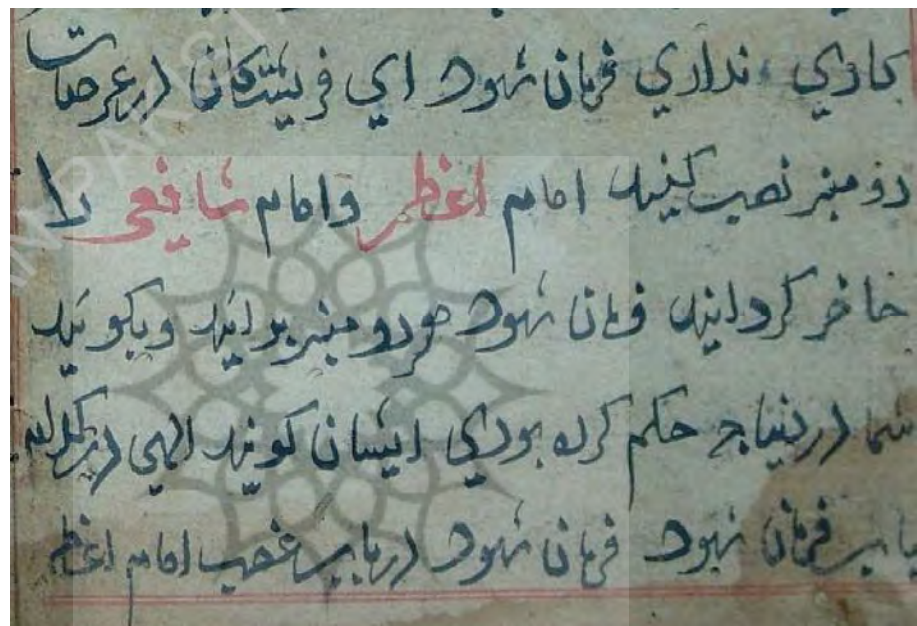 کاری نداری فرمان شود ای فریشتکان در عرصات
دو منبر نصب کنید امام اعظم و امام شافعی را
حاضر کردانید فرمان شود هر دو منبر برائید و بکوئید
شما در دنیا چه حکم کرده بودی ایشان کویند الهی در
فرمان نبود فرمان شود در باب غصب امام اعظم